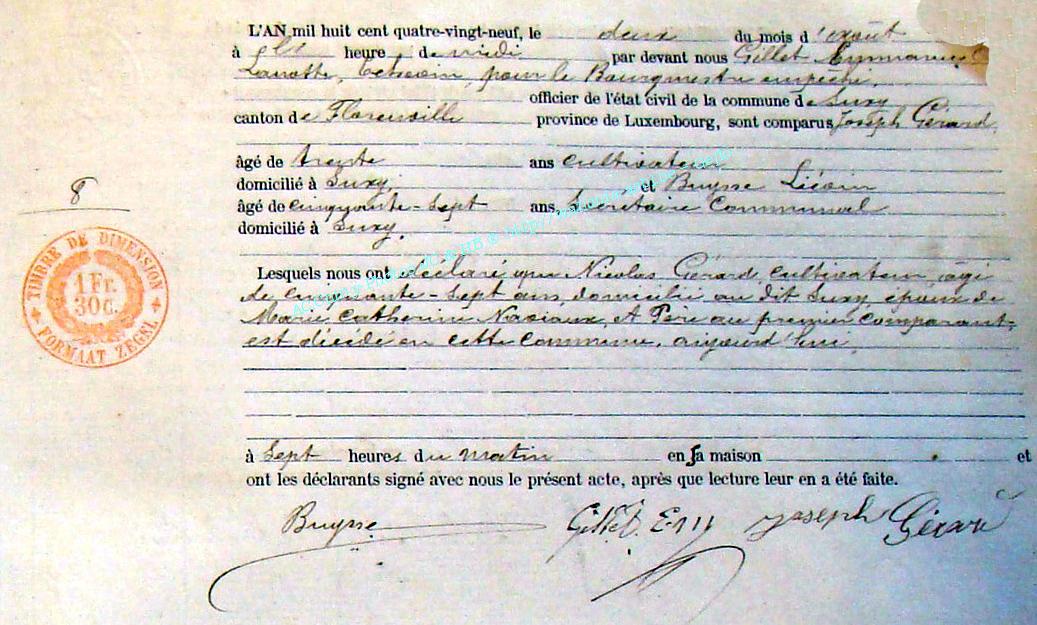 L'AN mil huit cent quatre-vingt-neuf, le deux du mois d'août
à heure de midi par devant nous Gillet
Lanotte, Echevin, pour le Bourgmestre empêché,
officier de l'état civil de la commune de Suxy
canton de Florenville province de Luxembourg, sont comparus Joseph Gérard,
âgé de trente ans cultivateur
domicilié à Suxy, et Buysse Liévin
âgé de cinquante-sept ans, Secrétaire Communal
domicilié à Suxy.
8
TIMBRE DE DIMENSION
1 Fr.
30 C.
FORMAAT ZEGEL
Lesquels nous ont déclaré que Nicolas Gérard cultivateur, âgé
de cinquante-sept ans, domicilié au dit Suxy, époux de
Marie Catherine A Père au premier comparant-
est décédé en cette Commune, aujourd'hui
à sept heures du matin en sa maison et
ont les déclarants signé avec nous le présent acte, après que lecture leur en a été faite.
Buysse Gillet Joseph Gérard